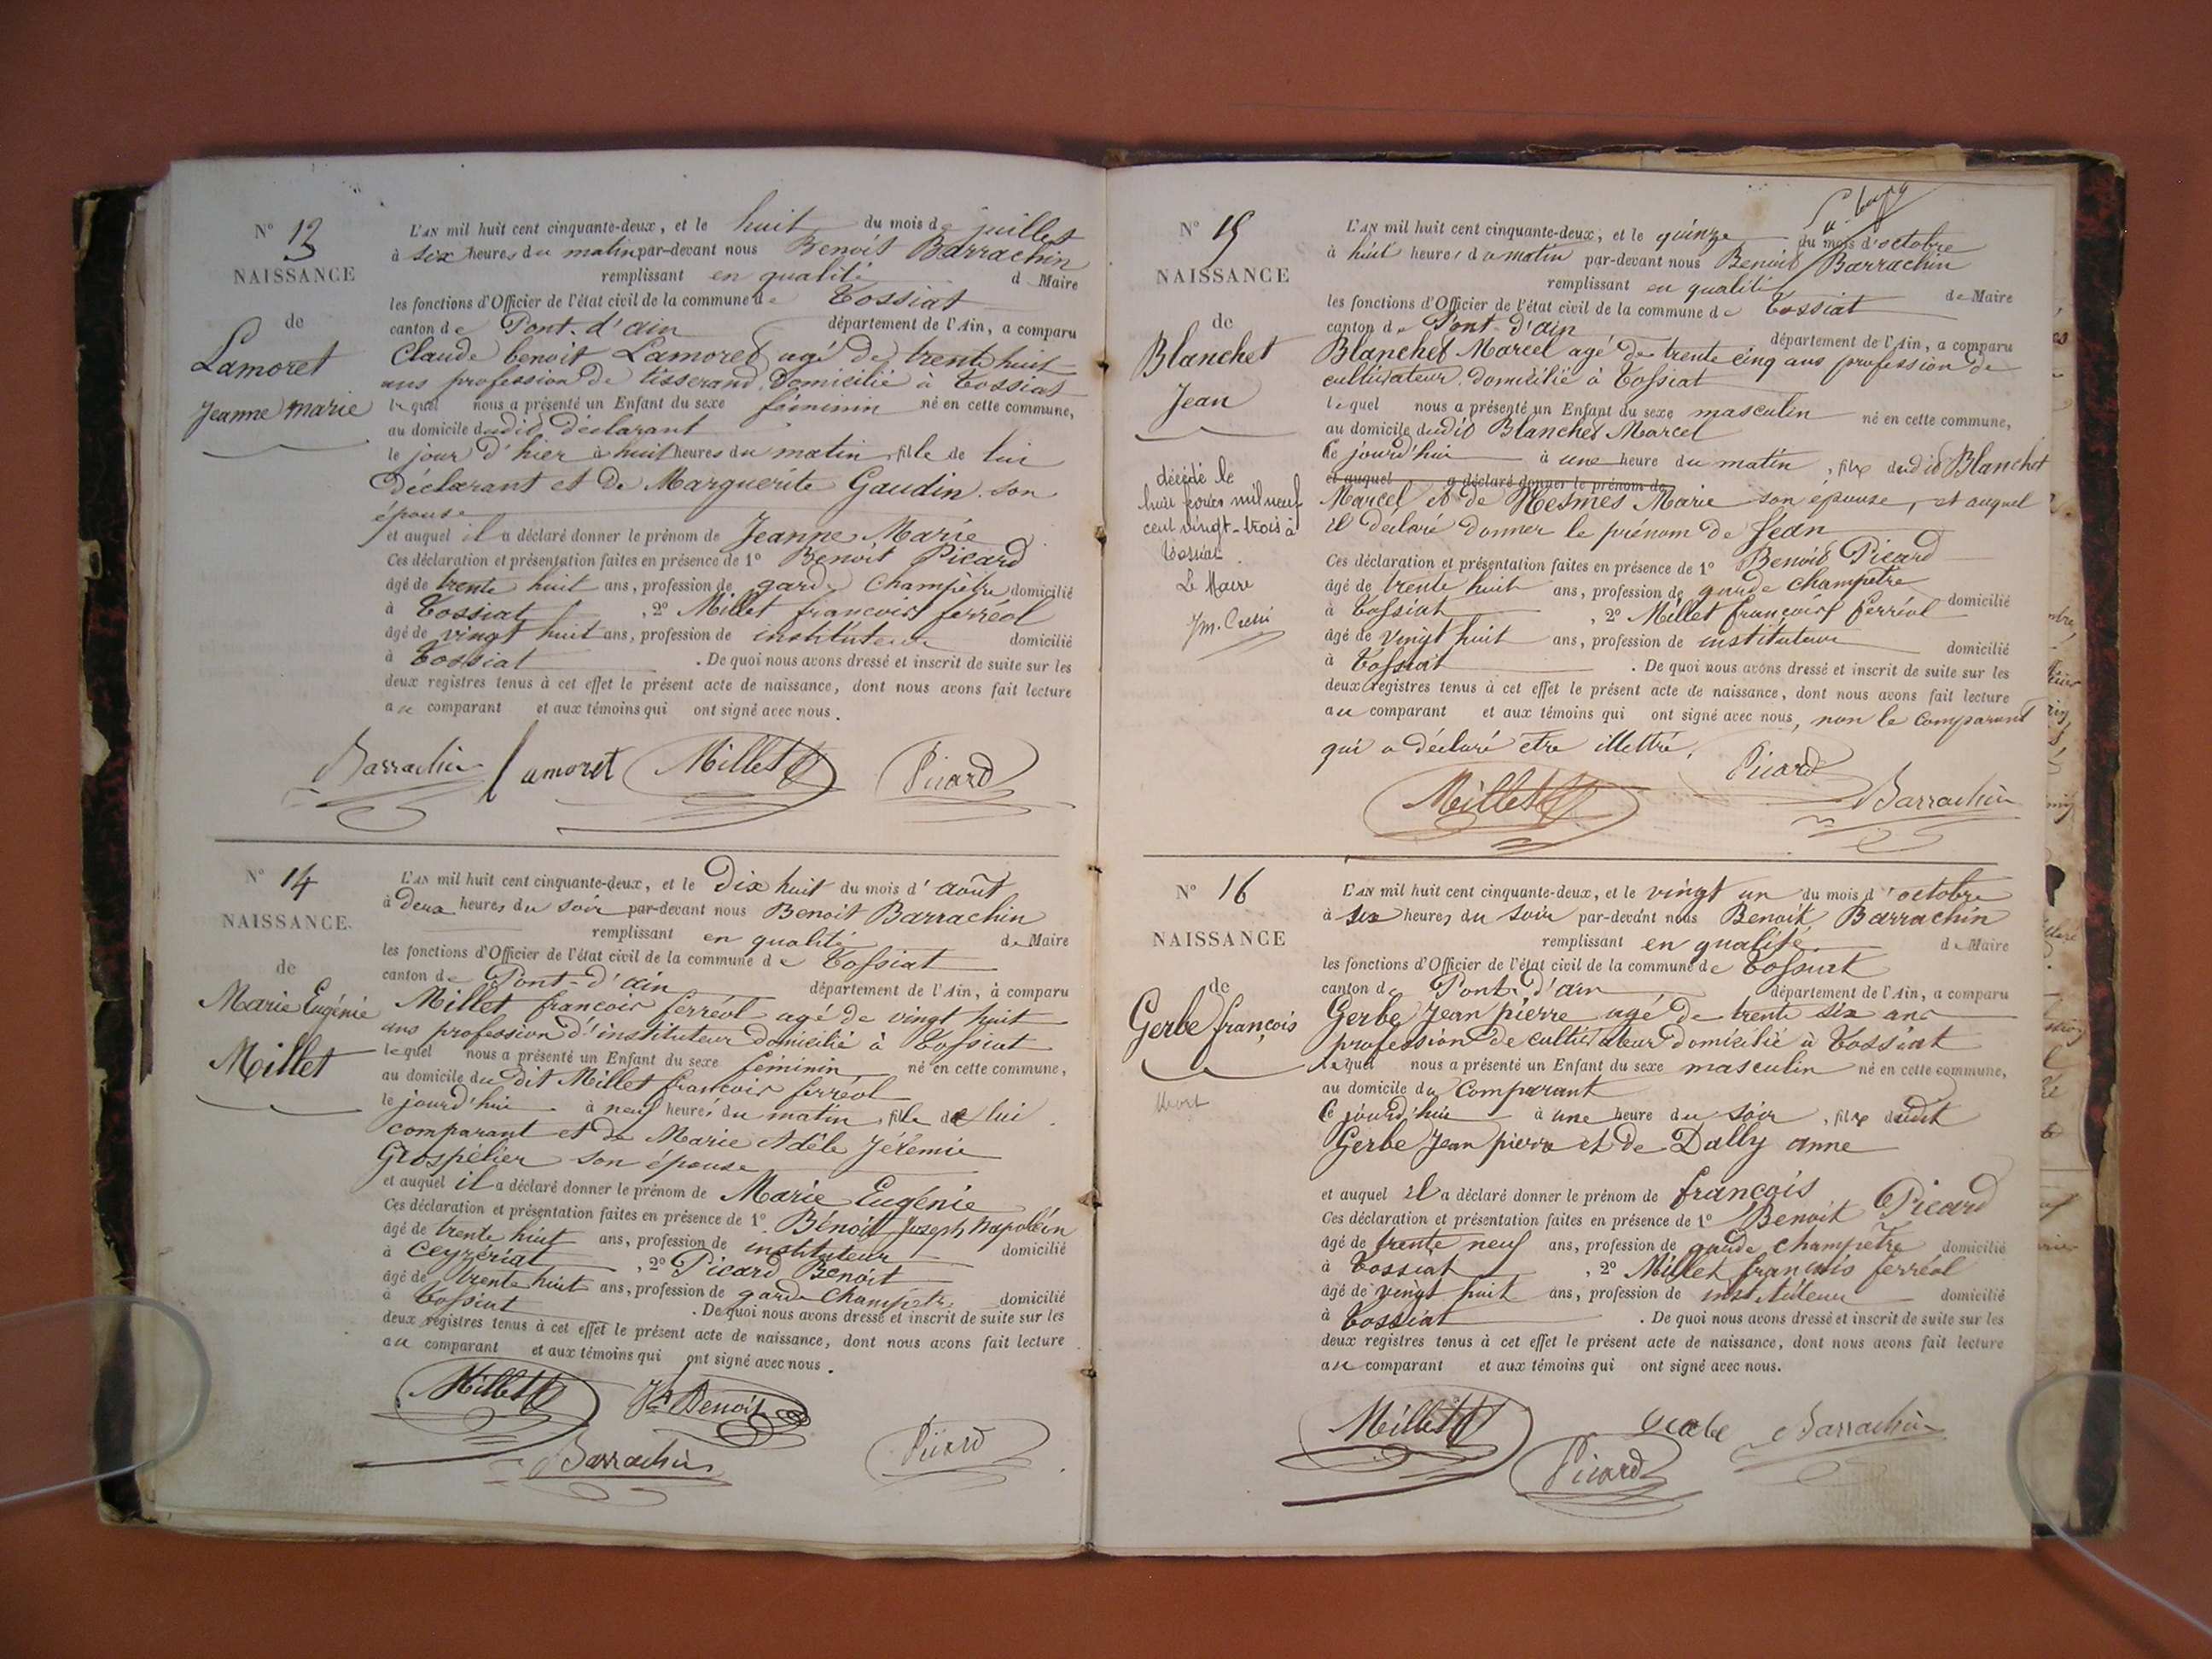 N° 13
NAISSANCE
de
Lamoret
Jeanne marie
L'AN mil huit cent cinquante-deux, et le huit du mois de juillet
à six heures du matin par-devant nous Benoit Barrachin
remplissant en qualité de Maire
les fonctions d'Officier de l'état civil de la commune de Tossiat
canton de Pont-d'ain département de l'Ain, a comparu
Claude benoit Lamoret agé de trente huit
ans profession de tisserand domicilié à Tossiat
lequel nous a présenté un Enfant du sexe féminin né en cette commune,
au domicile dudit déclarant
le jour d'hier à huit heures du matin, fille de lui
déclarant et de Marguerite Gaudin son
épouse
et auquel il a déclaré donner le prénom de Jeanne Marie
Ces déclaration et présentation faites en présence de 1° Benoit Picard
âgé de trente huit ans, profession de garde Champêtre domicilié
à Tossiat, 2° Millet francois ferréol
âgé de vingt huit ans, profession de instituteur domicilié
à Tossiat. De quoi nous avons dressé et inscrit de suite sur les
deux registres tenus à cet effet le présent acte de naissance, dont nous avons fait lecture
au comparant et aux témoins qui ont signé avec nous.
Barrachin Lamoret Millet Picard
N° 14
NAISSANCE.
de
Marie Eugénie
Millet
L'AN mil huit cent cinquante-deux, et le Dix huit du mois d'août
à deux heures du soir par-devant nous Benoit Barrachin
remplissant en qualité de Maire
les fonctions d'Officier de l'état civil de la commune de Tossiat
canton de Pont-d'ain département de l'Ain, à comparu
Millet francois ferréol agé de vingt huit
ans profession d'instituteur domicilié à Tossiat
lequel nous a présenté un Enfant du sexe féminin né en cette commune,
au domicile du dit Millet francois ferréol
le jourd'hui à neuf heures du matin, fille de lui
comparant et de Marie Adèle Jérémie
Grospélier son épouse
et auquel il a déclaré donner le prénom de Marie Eugénie
Ces déclaration et présentation faites en présence de 1° Bénoit Joseph Napoléon
âgé de trente huit ans, profession de instituteur domicilié
à Ceyzériat, 2° Picard Benoit
âgé de trente huit ans, profession de garde Champetre domicilié
à Tossiat. De quoi nous avons dressé et inscrit de suite sur les
deux registres tenus à cet effet le présent acte de naissance, dont nous avons fait lecture
au comparant et aux témoins qui ont signé avec nous.
Millet Benoit
Barrachin Picard
N° 15
NAISSANCE
de
Blanchet
Jean
décédé le
huit mil neuf
cent vingt-trois à
Tossiat
Le Maire
L'AN mil huit cent cinquante-deux, et le quinze du mois d'octobre
à huit heures du matin par-devant nous Benoit Barrachin
remplissant en qualité de Maire
les fonctions d'Officier de l'état civil de la commune de Tossiat
canton de Pont-d'Ain département de l'Ain, a comparu
Blanchet Marcel agé de trente cinq ans profession de
cultivateur domicilié à Tossiat
lequel nous a présenté un Enfant du sexe masculin né en cette commune,
au domicile dudit Blanchet Marcel
Ce jourd'hui à une heure du matin, fils dudit Blanchet
et auquel a déclaré donner le prénom de
Marcel et de Mesmes Marie son épouse, et auquel
il déclaré donner le prénom de Jean
Ces déclaration et présentation faites en présence de 1° Benoit Picard
âgé de trente huit ans, profession de garde champetre domicilié
à Tossiat, 2° Millet françois ferréol
âgé de vingt huit ans, profession de instituteur domicilié
à Tossiat. De quoi nous avons dressé et inscrit de suite sur les
deux registres tenus à cet effet le présent acte de naissance, dont nous avons fait lecture
au comparant et aux témoins qui ont signé avec nous, non le comparant
qui a déclaré etre illettré.
Millet Picard Barrachin
N° 16
NAISSANCE
de
Gerbe françois
Mort
L'AN mil huit cent cinquante-deux, et le vingt un du mois d'octobre
à six heures du soir par-devant nous Benoit Barrachin
remplissant en qualité de Maire
les fonctions d'Officier de l'état civil de la commune de Tossiat
canton de Pont-d'ain département de l'Ain, a comparu
Gerbe Jean pierre agé de trente six ans
profession de cultivateur domicilié à Tossiat
lequel nous a présenté un Enfant du sexe masculin né en cette commune,
au domicile du Comparant
Ce jourd'hui à une heure du soir, fils dudit
Gerbe Jean pierre et de Dally anne
et auquel il a déclaré donner le prénom de françois
Ces déclaration et présentation faites en présence de 1° Benoit Picard
âgé de trente neuf ans, profession de garde champetre domicilié
à Tossiat, 2° Millet francois ferréol
âgé de vingt huit ans, profession de instituteur domicilié
à Tossiat. De quoi nous avons dressé et inscrit de suite sur les
deux registres tenus à cet effet le présent acte de naissance, dont nous avons fait lecture
au comparant et aux témoins qui ont signé avec nous.
Millet Barrachin
Picard